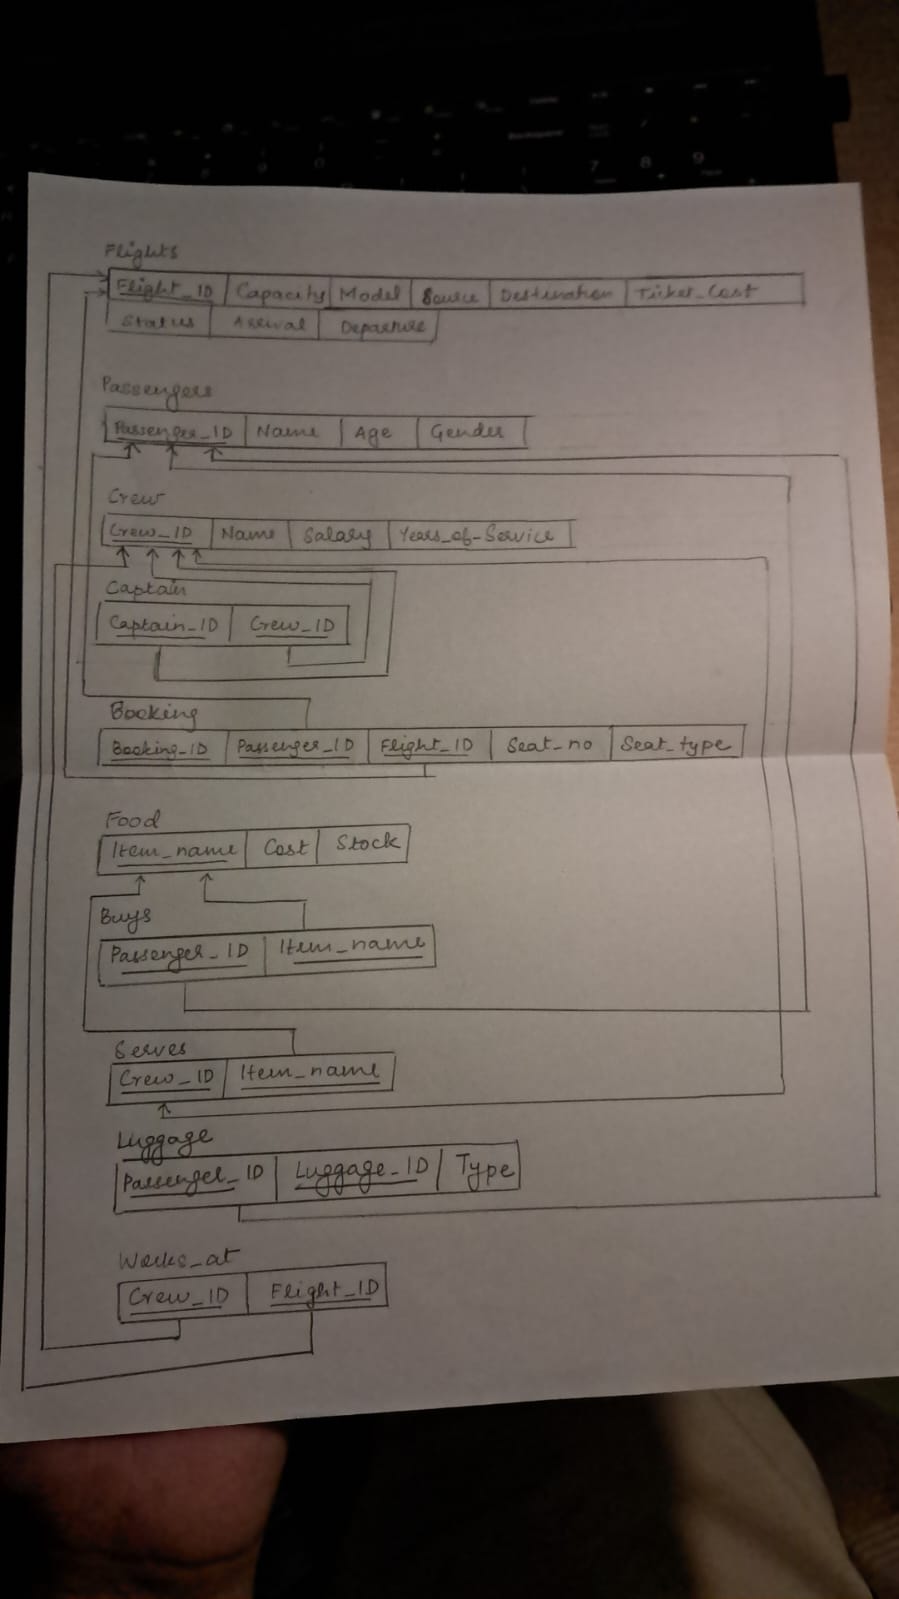 Flights
Flight_ID Capacity Model Source Destination Ticket_Cost
Status Arrival Departure
Passengers
Passenger_ID Name Age Gender
Crew
Crew_ID Name Salary Years_of-Service
Captain
Captain_ID Crew_ID
Booking
Booking_ID Passenger_ID Flight_ID Seat_no Seat_type
Food
Item_name Cost Stock
Buys
Passenger_ID Item_name
Serves
Crew_ID Item_name
Luggage
Passenger_ID Luggage_ID Type
Works_at
Crew_ID Flight_ID